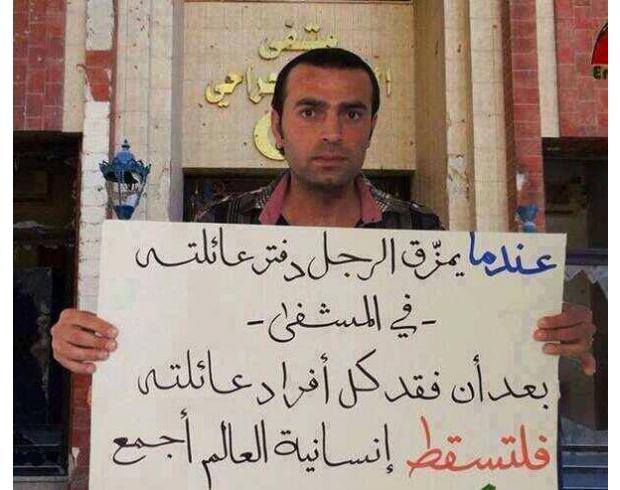 مشفى
الجراحي
En
عندما يمزّق الرجل دفتر عائلته
- في المشفى -
بعد أن فقد كل أفراد عائلته
فلتسقط إنسانية العالم أجمع